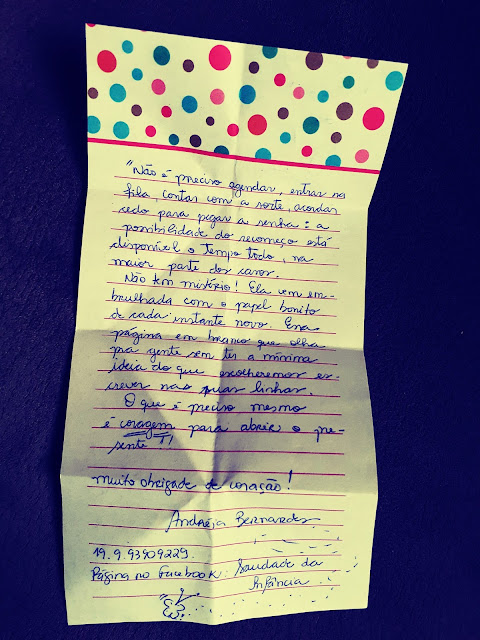 "Não é preciso agendar, entrar na
fila, contar com a sorte, acordar
cedo para pegar a senha: a
possibilidade do recomeço está
disponível o tempo todo, na
maior parte dos casos.
Não tem mistério! Ela vem em-
brulhada com o papel bonito
de cada instante novo. Essa
página em branco que olha
pra gente sem ter a mínima
ideia do que escolheremos es-
crever nas suas linhas.
O que é preciso mesmo
é coragem para abrir o pre-
sente"!!
muito obrigada de coração!
Andréja Bernardes
19.9.93909229.
Página no Facebook: Saudade da
Infância